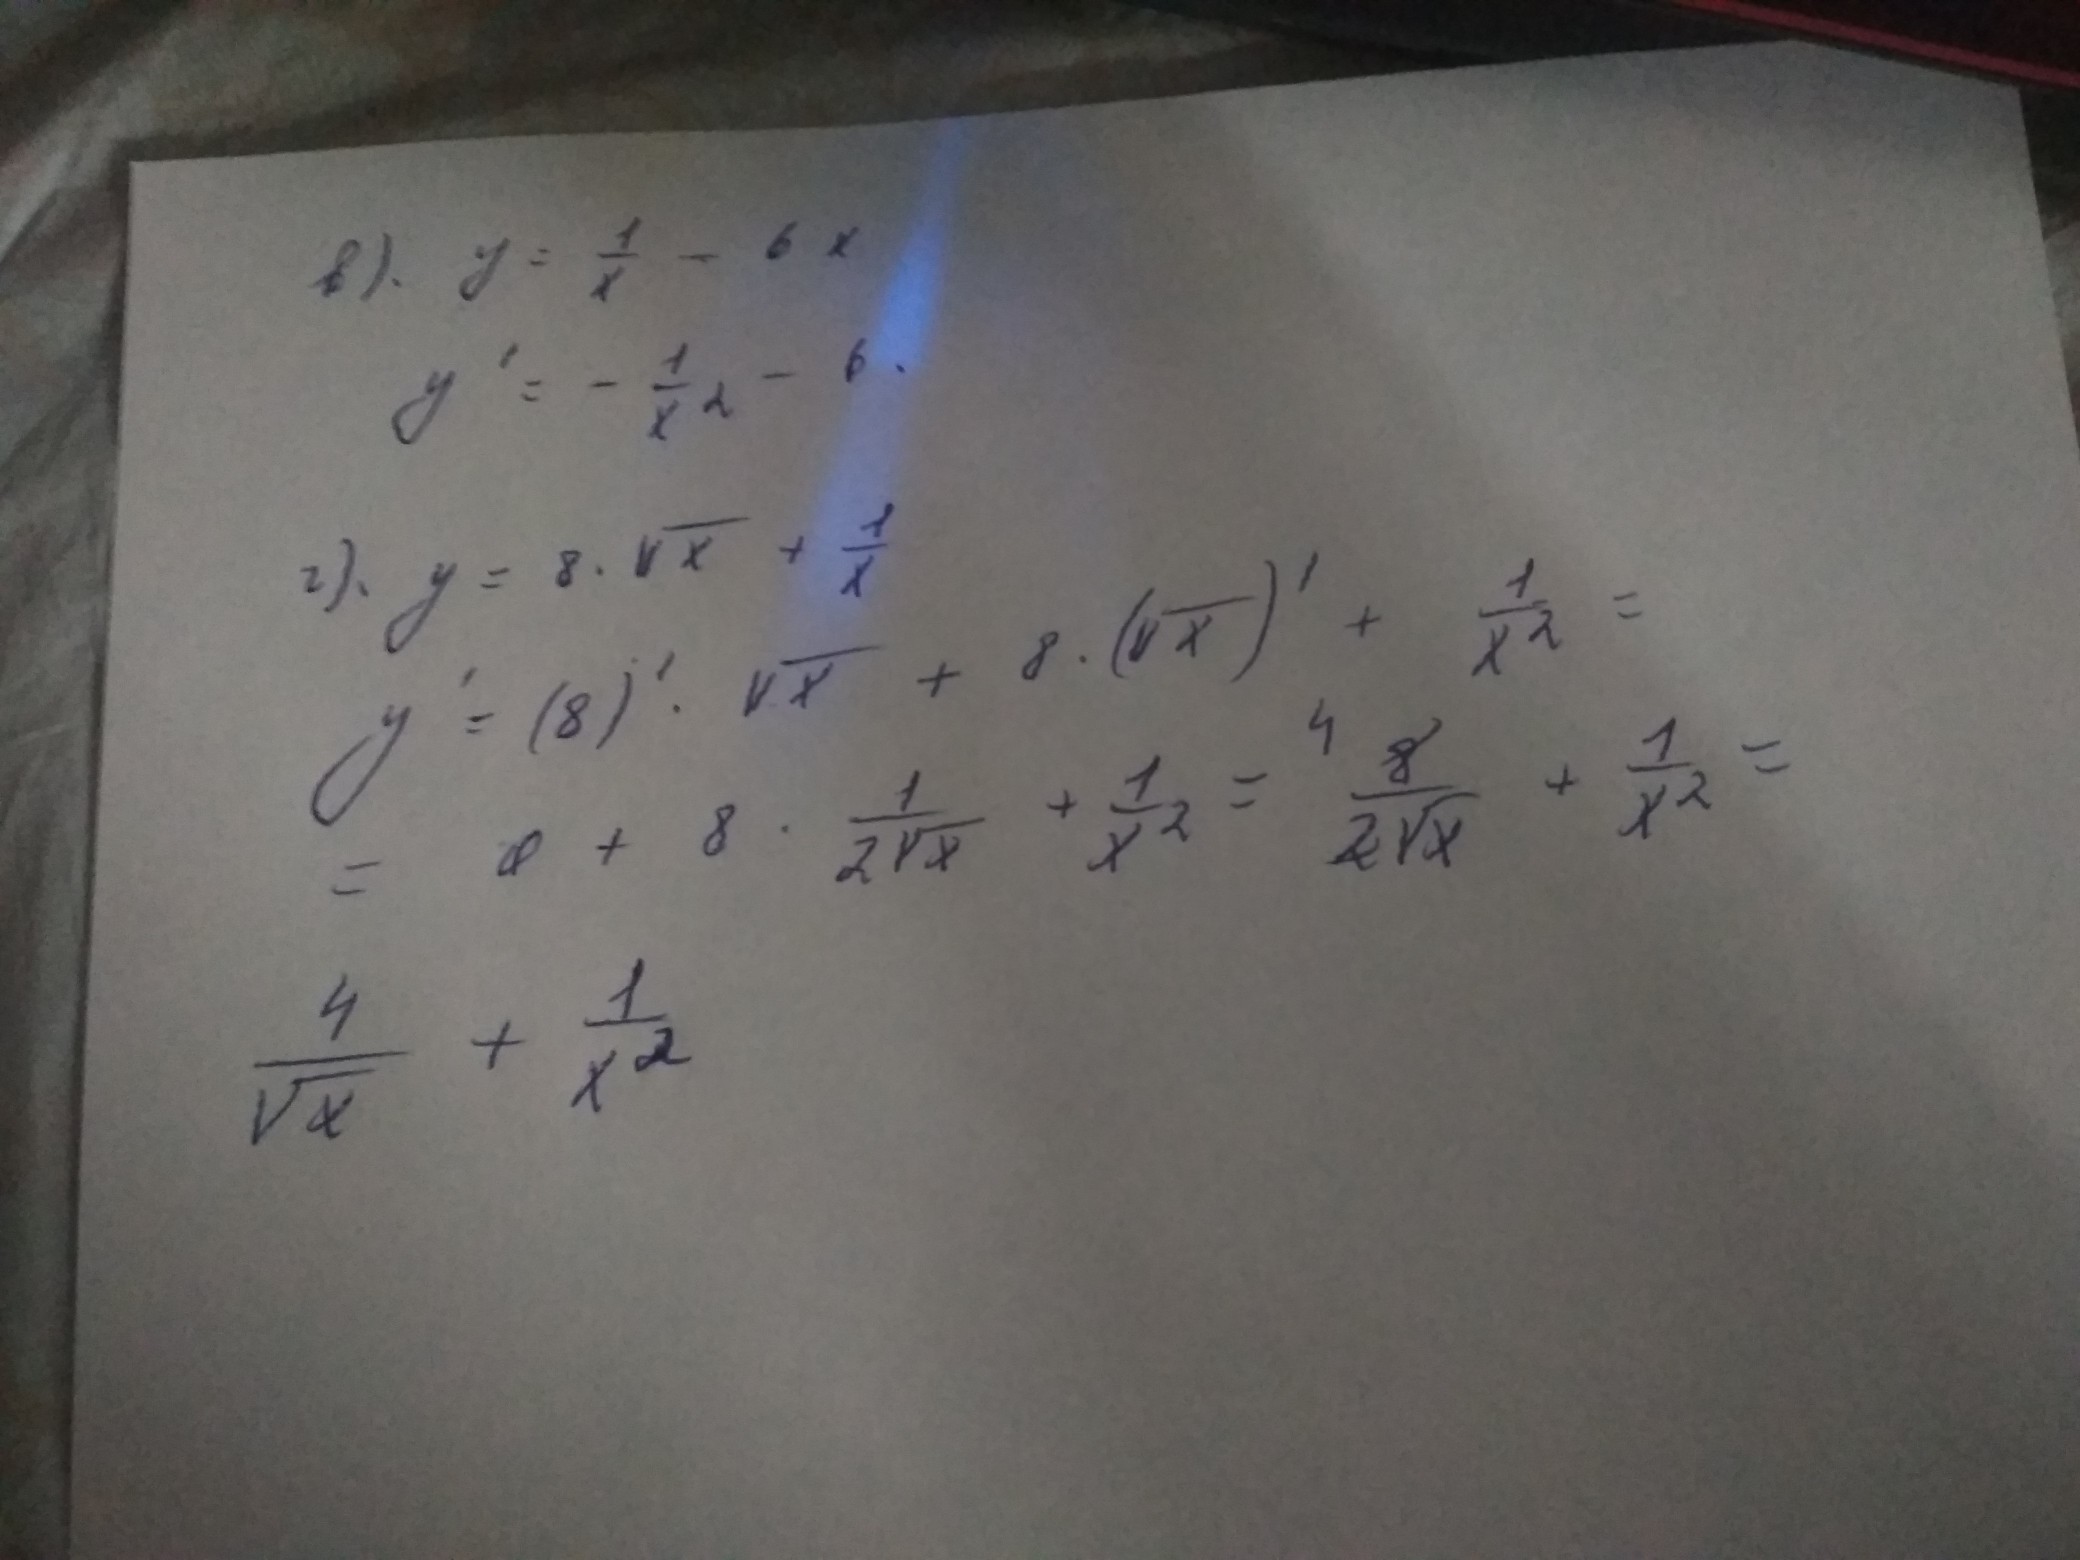 в). y = 1/x - 6x
y' = - 1/x² - 6.
г). y = 8 · √x + 1/x
y' = (8)' · √x + 8 · (√x)' + 1/x² =
= 0 + 8 · 1/2√x + 1/x² = 4 8/2√x + 1/x² =
4/√x + 1/x²